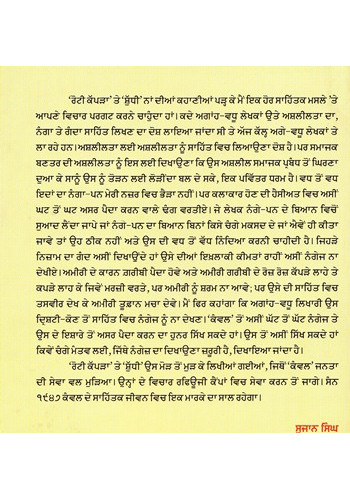 'ਰੋਟੀ ਕੱਪੜਾ' ਤੇ 'ਸ਼ੁੱਧੀ' ਨਾਂ ਦੀਆਂ ਕਹਾਣੀਆਂ ਪੜ੍ਹ ਕੇ ਮੈਂ ਇਕ ਹੋਰ ਸਾਹਿੱਤਕ ਮਸਲੇ 'ਤੇ
ਆਪਣੇ ਵਿਚਾਰ ਪਰਗਟ ਕਰਨੇ ਚਾਹੁੰਦਾ ਹਾਂ। ਕਦੇ ਅਗਾਂਹ-ਵਧੂ ਲੇਖਕਾਂ ਉਤੇ ਅਸ਼ਲੀਲਤਾ ਦਾ,
ਨੰਗਾ ਤੇ ਗੰਦਾ ਸਾਹਿੱਤ ਲਿਖਣ ਦਾ ਦੋਸ਼ ਲਾਇਆ ਜਾਂਦਾ ਸੀ ਤੇ ਅੱਜ ਕੱਲ੍ਹ ਅਗੇ-ਵਧੂ ਲੇਖਕਾਂ ਤੇ
ਲਾ ਰਹੇ ਹਨ। ਅਸ਼ਲੀਲਤਾ ਲਈ ਅਸ਼ਲੀਲਤਾ ਨੂੰ ਸਾਹਿੱਤ ਵਿਚ ਲਿਆਉਣਾ ਦੋਸ਼ ਹੈ। ਪਰ ਸਮਾਜਕ
ਬਣਤਰ ਦੀ ਅਸ਼ਲੀਲਤਾ ਨੂੰ ਇਸ ਲਈ ਦਿਖਾਉਣਾ ਕਿ ਉਸ ਅਸ਼ਲੀਲ ਸਮਾਜਕ ਪ੍ਰਬੰਧ ਤੋਂ ਘਿਰਣਾ
ਦੁਆ ਕੇ ਸਾਨੂੰ ਉਸ ਨੂੰ ਤੋੜਨ ਲਈ ਲੋੜੀਂਦਾ ਬਲ ਦੇ ਸਕੇ, ਇਕ ਪਵਿੱਤਰ ਧਰਮ ਹੈ। ਵਧ ਤੋਂ ਵਧ
ਇਦਾਂ ਦਾ ਨੰਗਾ-ਪਨ ਮੇਰੀ ਨਜ਼ਰ ਵਿਚ ਭੈੜਾ ਨਹੀਂ। ਪਰ ਕਲਾਕਾਰ ਹੋਣ ਦੀ ਹੈਸੀਅਤ ਵਿਚ ਅਸੀਂ
ਘਟ ਤੋਂ ਘਟ ਅਸਰ ਪੈਦਾ ਕਰਨ ਵਾਲੇ ਢੰਗ ਵਰਤੀਏ। ਜੇ ਲੇਖਕ ਨੰਗੇ-ਪਨ ਦੇ ਬਿਆਨ ਵਿਚੋਂ
ਸੁਆਦ ਲੈਂਦਾ ਜਾਪੇ ਜਾਂ ਨੰਗ-ਪਨ ਦਾ ਬਿਆਨ ਬਿਨਾਂ ਕਿਸੇ ਚੰਗੇ ਮਕਸਦ ਦੇ ਜਾਂ ਐਵੇਂ ਹੀ ਕੀਤਾ
ਜਾਵੇ ਤਾਂ ਉਹ ਠੀਕ ਨਹੀਂ ਅਤੇ ਉਸ ਦੀ ਵਧ ਤੋਂ ਵੱਧ ਨਿੰਦਿਆ ਕਰਨੀ ਚਾਹੀਦੀ ਹੈ। ਜਿਹੜੇ
ਨਿਜ਼ਾਮ ਦਾ ਗੰਦ ਅਸੀਂ ਦਿਖਾਉਂਦੇ ਹਾਂ ਉਸੇ ਦੀਆਂ ਇਖ਼ਲਾਕੀ ਕੀਮਤਾਂ ਰਾਹੀਂ ਅਸੀਂ ਨੰਗੇਜ ਨਾ
ਦੇਖੀਏ। ਅਮੀਰੀ ਦੇ ਕਾਰਨ ਗਰੀਬੀ ਪੈਦਾ ਹੋਵੇ ਅਤੇ ਅਮੀਰੀ ਗਰੀਬੀ ਦੇ ਰੋਜ਼ ਰੋਜ਼ ਕੱਪੜੇ ਲਾਹੇ ਤੇ
ਕਪੜੇ ਲਾਹ ਕੇ ਜਿਵੇਂ ਮਰਜ਼ੀ ਵਰਤੇ, ਪਰ ਅਮੀਰੀ ਨੂੰ ਸ਼ਰਮ ਨਾ ਆਵੇ; ਪਰ ਉਸੇ ਦੀ ਸਾਹਿੱਤ ਵਿਚ
ਤਸਵੀਰ ਦੇਖ ਕੇ ਅਮੀਰੀ ਤੂਫ਼ਾਨ ਮਚਾ ਦੇਵੇ। ਮੈਂ ਫਿਰ ਕਹਾਂਗਾ ਕਿ ਅਗਾਂਹ-ਵਧੂ ਲਿਖਾਰੀ ਉਸ
ਦ੍ਰਿਸ਼ਟੀ-ਕੋਣ ਤੋਂ ਸਾਹਿੱਤ ਵਿਚ ਨੰਗੇਜ ਨੂੰ ਨਾ ਦੇਖਣ। 'ਕੰਵਲ' ਤੋਂ ਅਸੀਂ ਘੱਟ ਤੋਂ ਘੱਟ ਨੰਗੇਜ ਤੇ
ਉਸ ਦੇ ਇਸ਼ਾਰੇ ਤੋਂ ਅਸਰ ਪੈਦਾ ਕਰਨ ਦਾ ਹੁਨਰ ਸਿੱਖ ਸਕਦੇ ਹਾਂ। ਉਸ ਤੋਂ ਅਸੀਂ ਸਿੱਖ ਸਕਦੇ ਹਾਂ
ਕਿਵੇਂ ਚੰਗੇ ਮੰਤਵ ਲਈ, ਜਿੱਥੇ ਨੰਗੇਜ਼ ਦਾ ਦਿਖਾਉਣਾ ਜ਼ਰੂਰੀ ਹੈ, ਦਿਖਾਇਆ ਜਾਂਦਾ ਹੈ।
'ਰੋਟੀ ਕੱਪੜਾ' ਤੇ 'ਸ਼ੁੱਧੀ' ਉਸ ਮੋੜ ਤੋਂ ਮੁੜ ਕੇ ਲਿਖੀਆਂ ਗਈਆਂ, ਜਿਥੋਂ 'ਕੰਵਲ' ਜਨਤਾ
ਦੀ ਸੇਵਾ ਵਲ ਮੁੜਿਆ। ਉਨ੍ਹਾਂ ਦੇ ਵਿਚਾਰ ਰਫਿਊਜੀ ਕੈਂਪਾਂ ਵਿਚ ਸੇਵਾ ਕਰਨ ਤੋਂ ਜਾਗੇ। ਸੰਨ
੧੯੪੭ ਕੰਵਲ ਦੇ ਸਾਹਿੱਤਕ ਜੀਵਨ ਵਿਚ ਇਕ ਮਾਰਕੇ ਦਾ ਸਾਲ ਰਹੇਗਾ।
ਸੁਜਾਨ ਸਿੰਘ